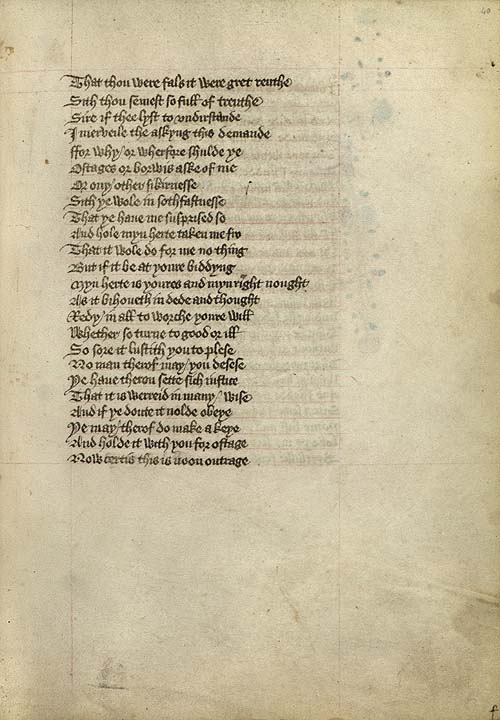 40
That thou were fals it were gret reuthe
Sith thou semest so full of treuthe
Sire if thee lyst to undirstande
I merveile the askyng this demande
ffor why / or wherfore shulde ye
Ostages or borwis aske of me
Or ony / other sikirnesse
Sith ye wole in sothfastnesse
That ye have me susprised so
And hole myn herte taken me fro
That it wole do for me no thing
But if it be at youre biddyng
Myn herte is youres and myn right nought
As it bihoveth in dede and thought
Redy / in all to worche youre will
Whether so turne to good or ill
So sore it lustith you to plese
No man therof may / you desese
Ye have theron sette sich iustice
That it is werreid in many / wise
And if ye doute it nolde obeye
Ye may / therof do make a keye
And holde it with you for ostage
Now certis this is noon outrage